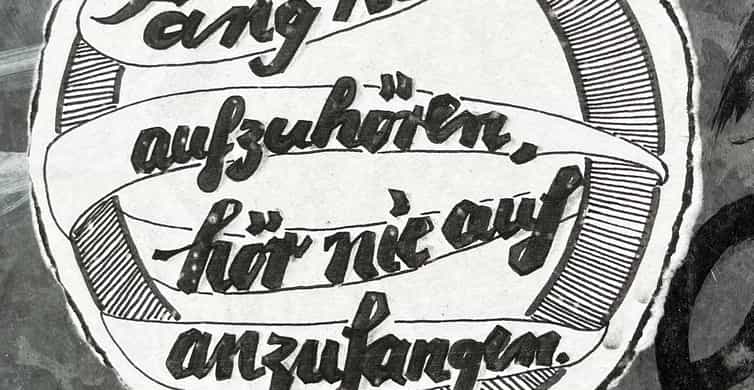 aufzuhören,
hör nie auf
anzufangen.